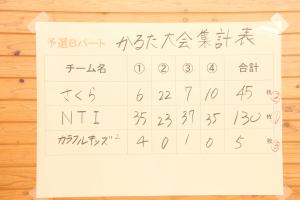 予選Bパート かるた大会集計表
チーム名 ① ② ③ ④ 合計
さくら 6 22 7 10 45 枚 ②
NTI 35 23 37 35 130 枚
カラフルキッズ2 4 0 1 0 5 枚 ③